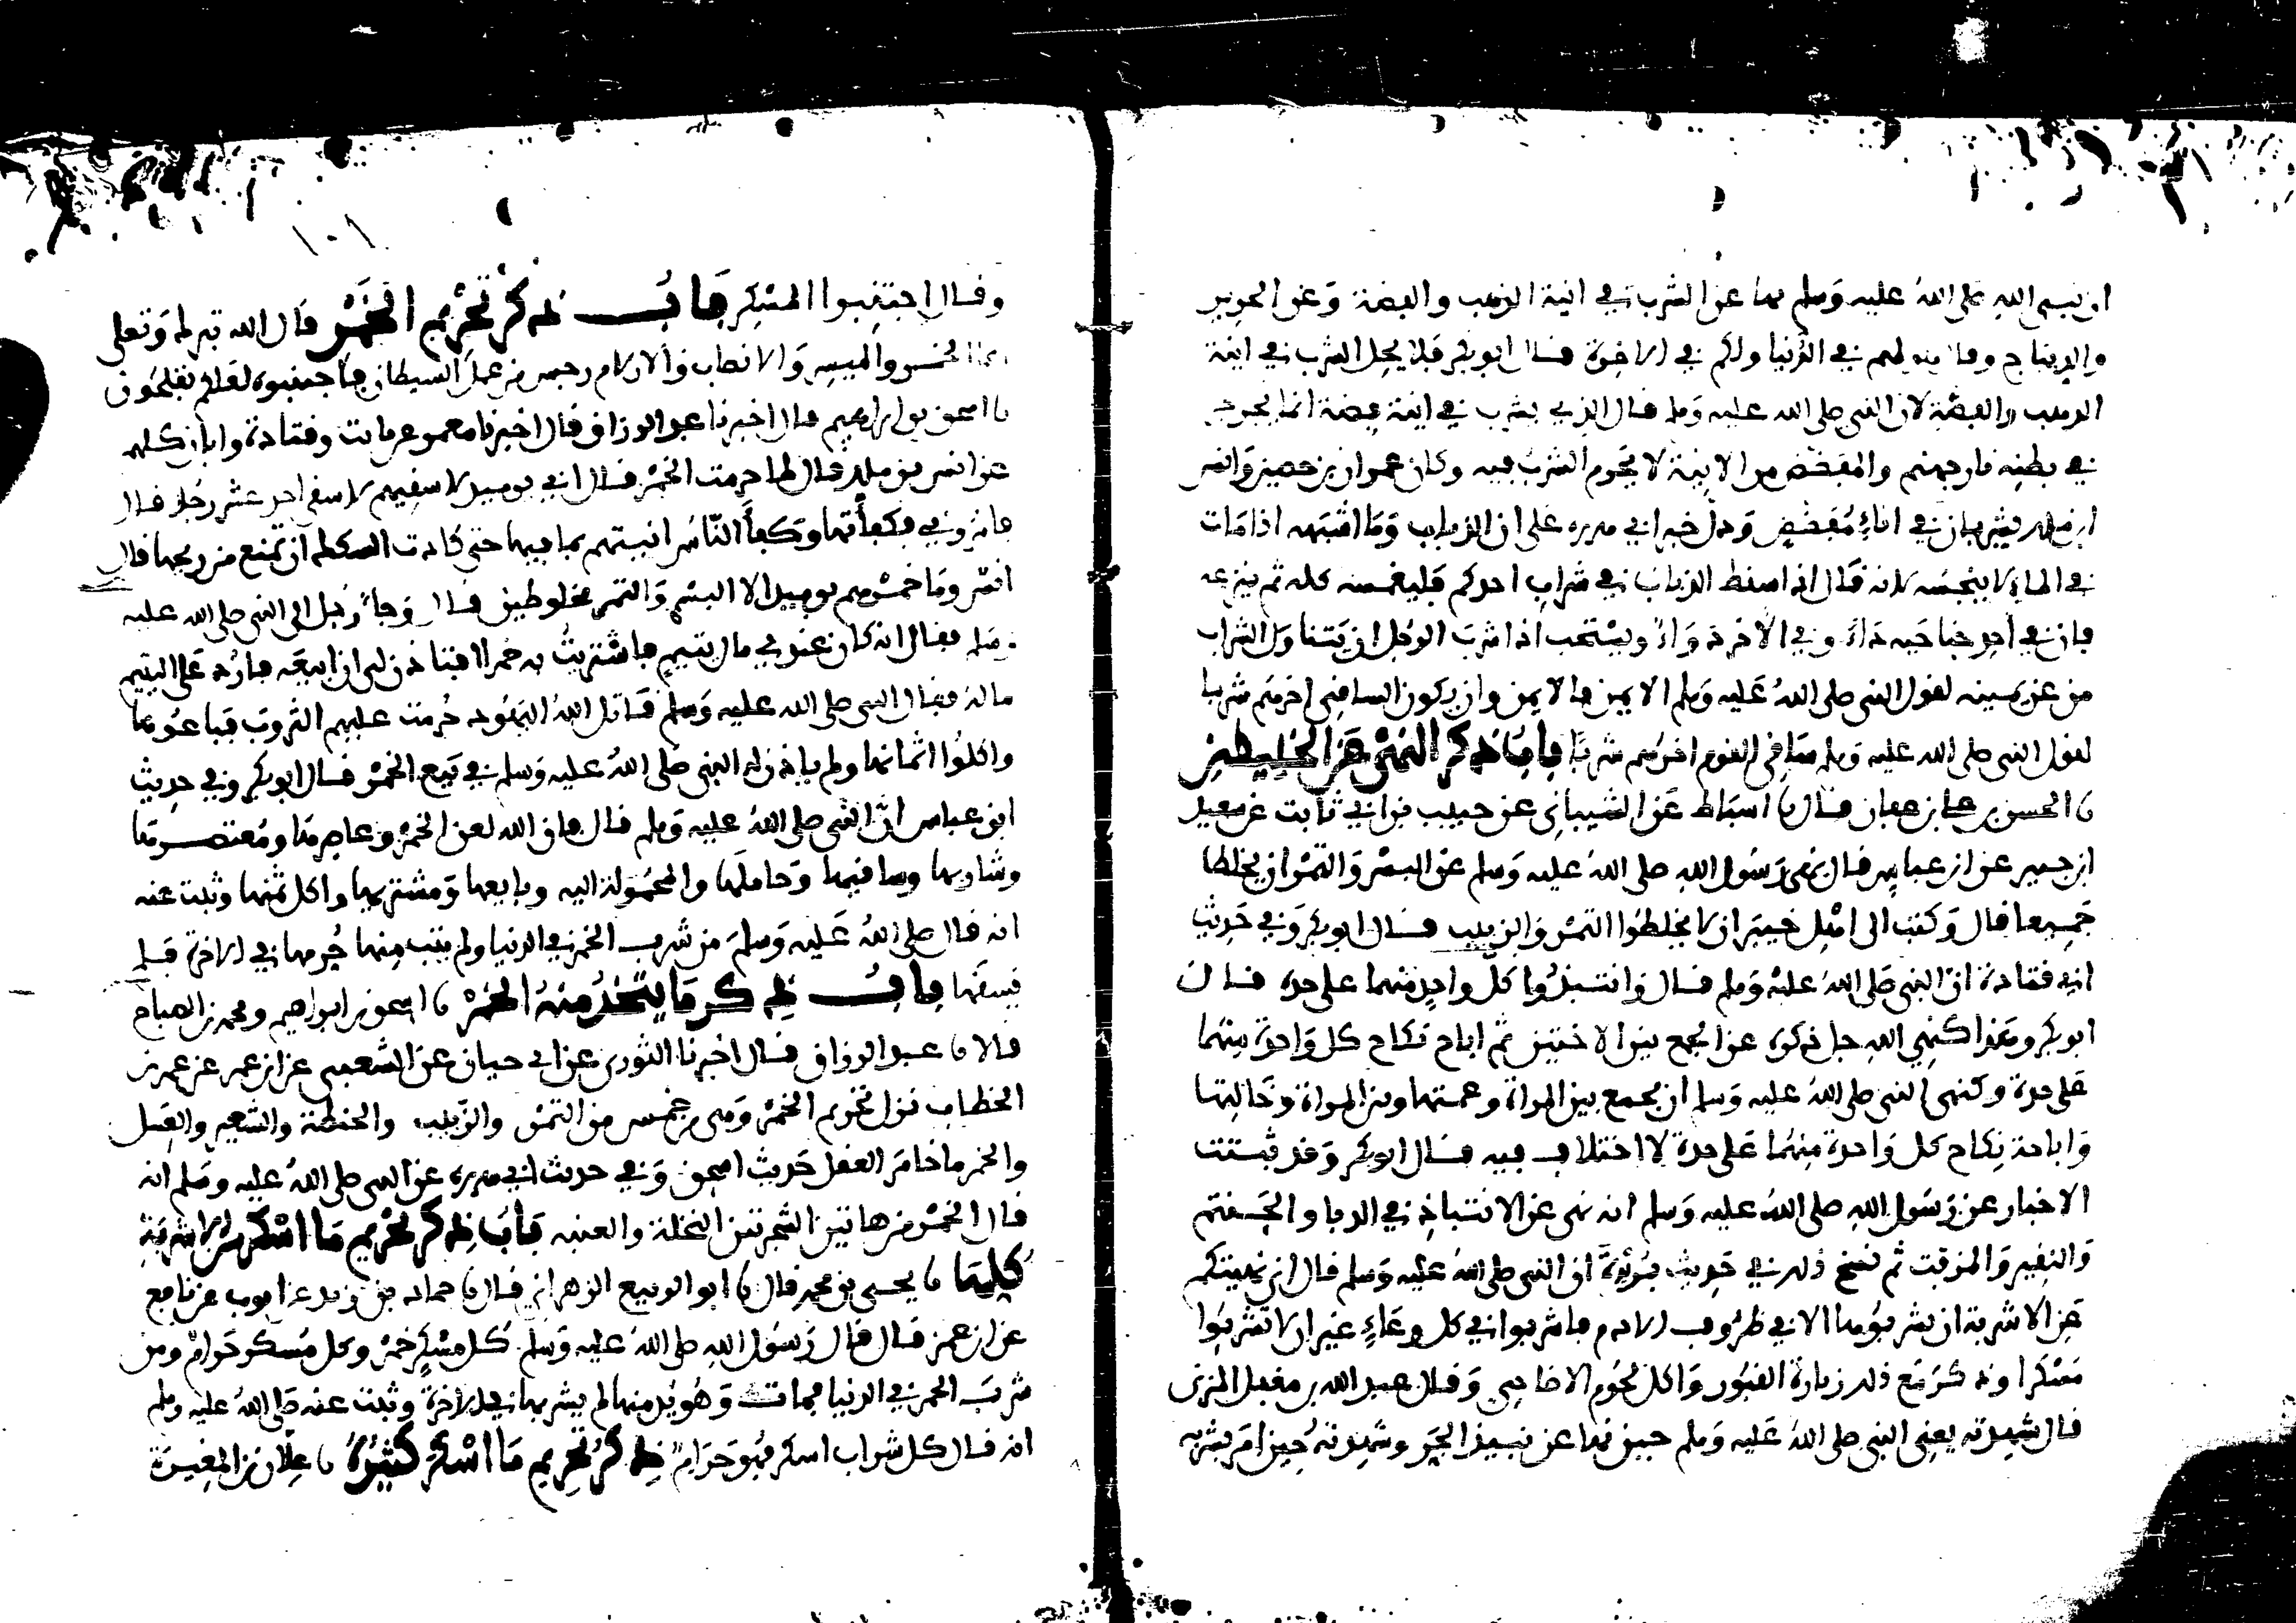 ان نبي الله صلى الله عليه وسلم نها عن الشرب في انية الذهب والفضة وعن الحرير
والديباج وقال هو لهم في الدنيا ولكم في الاخرة قال ابو بكر فلا يحل الشرب في انية
الذهب والفضة لان النبي صلى الله عليه وسلم قال الذي يشرب في انية فضة انما يجرجر
في بطنه نار جهنم والمفضض من الانية لا يحرم الشرب فيه وكان عمران بن حصين وانس
ابن ملك يشربان في اناء مفضض ودل خبر ابي هريرة على ان الذباب وما اشبهه اذا مات
في الماء لا ينجسه لانه قال اذا سقط الذباب في شراب احدكم فليغمسه كله ثم ينزعه
فان في احد جناحيه داء وفي الاخر دواء ويستحب اذا شرب الرجل ان يتناول الشراب
من عن يمينه لقول النبي صلى الله عليه وسلم الايمن فالايمن وان يكون الساقي اخرهم شربا
لقول النبي صلى الله عليه وسلم ساقي القوم اخرهم شربا باب ذكر النهي عن الخليطين
نا الحسن بن علي بن عفان قال نا اسباط عن الشيباني عن حبيب بن ابي ثابت عن سعيد
ابن جبير عن ابن عباس قال نهى رسول الله صلى الله عليه وسلم عن البسر والتمر ان يخلطا
جميعا قال وكتب الى اهل خيبر ان لا يخلطوا التمر والزبيب قال ابو بكر وفي حديث
ابي قتادة ان النبي صلى الله عليه وسلم قال وانتبذوا كل واحد منهما على حدة قال
ابو بكر وهذا كنهي الله جل ذكره عن الجمع بين الاختين ثم اباح نكاح كل واحدة منهما
على حدة وكنهي النبي صلى الله عليه وسلم ان يجمع بين المراة وعمتها وبين المراة وخالتها
واباحة نكاح كل واحدة منهما على حدة لا اختلاف فيه قال ابو بكر وقد ثبتت
الاخبار عن رسول الله صلى الله عليه وسلم انه نهى عن الانتباذ في الدبا والحنتم
والنقير والمزفت ثم نسخ ذلك في حديث بريدة ان النبي صلى الله عليه وسلم قال اني نهيتكم
عن الاشربة ان تشربوها الا في ظروف الادم فاشربوا في كل وعاء غير ان لا تشربوا
مسكرا وذكر مع ذلك زيارة القبور واكل لحوم الاضاحي وقال عبد الله بن مغفل المزني
قال شهدته يعني النبي صلى الله عليه وسلم حين نها عن نبيذ الجر وشهدته حين امر بشربه
وقال اجتنبوا المسكر باب ذكر تحريم الخمر قال الله تبرك وتعلى
انما الخمر والميسر والانصاب والازلام رجس من عمل الشيطان فاجتنبوه لعلكم تفلحون
نا اسحق بن ابراهيم قال اخبرنا عبد الرزاق قال اخبرنا معمر عن ثابت وقتادة وابان كلهم
عن انس بن ملك قال لما حرمت الخمر قال اني يوميذ لاسقيهم لاسقي احد عشر رجلا قال
فامروني فكفاتها وكفا الناس انيتهم بما فيها حتى كادت السكك ان تمنع من ريحها قال
انس وما خمرهم يوميذ الا البسر والتمر مخلوطين قال وجاء رجل الى النبي صلى الله عليه
وسلم فقال انه كان عندي مال يتيم فاشتريت به خمرا افتاذن لي ان ابيعه فارد على اليتيم
ماله فقال النبي صلى الله عليه وسلم قاتل الله اليهود حرمت عليهم الثروب فباعوها
واكلوا اثمانها ولم ياذن له النبي صلى الله عليه وسلم في بيع الخمر قال ابو بكر وفي حديث
ابن عباس ان النبي صلى الله عليه وسلم قال فان الله لعن الخمر وعاصرها ومعتصرها
وشاربها وساقيها وحاملها والمحمولة اليه وبايعها ومشتريها واكل ثمنها وثبت عنه
انه قال صلى الله عليه وسلم من شرب الخمر في الدنيا ولم يتب منها حرمها في الاخرة فلم
يسقها باب ذكر ما يتخذ منه الخمر نا اسحق بن ابراهيم ومحمد بن الصباح
قالا نا عبد الرزاق قال اخبرنا الثوري عن ابي حيان عن الشعبي عن ابن عمر عن عمر بن
الخطاب نزل تحريم الخمر وهي من خمس من التمر والزبيب والحنطة والشعير والعسل
والخمر ما خامر العقل حديث اسحق وفي حديث ابي هريرة عن النبي صلى الله عليه وسلم انه
قال الخمر من هاتين الشجرتين النخلة والعنبه باب ذكر تحريم ما اسكر من الاشربة
كلها نا يحيى بن محمد قال نا ابو الربيع الزهراني قال نا حماد بن زيد عن ايوب عن نافع
عن ابن عمر قال قال رسول الله صلى الله عليه وسلم كل مسكر خمر وكل مسكر حرام ومن
شرب الخمر في الدنيا فمات وهو يدمنها لم يشربها في الاخرة وثبت عنه صلى الله عليه وسلم
انه قال كل شراب اسكر فهو حرام ذكر تحريم ما اسكر كثيره نا علان بن المغيرة